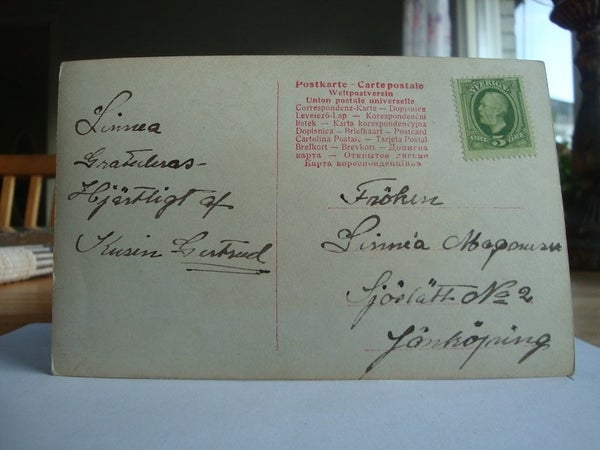 Linnea
Gratuleras
Hjärtligt af
Kusin Gertrud
Postkarte – Carte postale
Weltpostverein
Union postale universelle
Correspondenz-Karte – Dopisnice
Levelező-Lap – Korespondencni
listek – Karta korespondencyjna
Dopisnica – Briefkaart – Postcard
Cartolina Postale – Tarjeta Postal
Brefkort – Brevkort – Дописна
карта – Открытое письмо
Карта кореспонденциина
SVERIGE
ÖRE 5 ÖRE
Fröken
Linnéa
Sjöslätt No 2
Jönköping